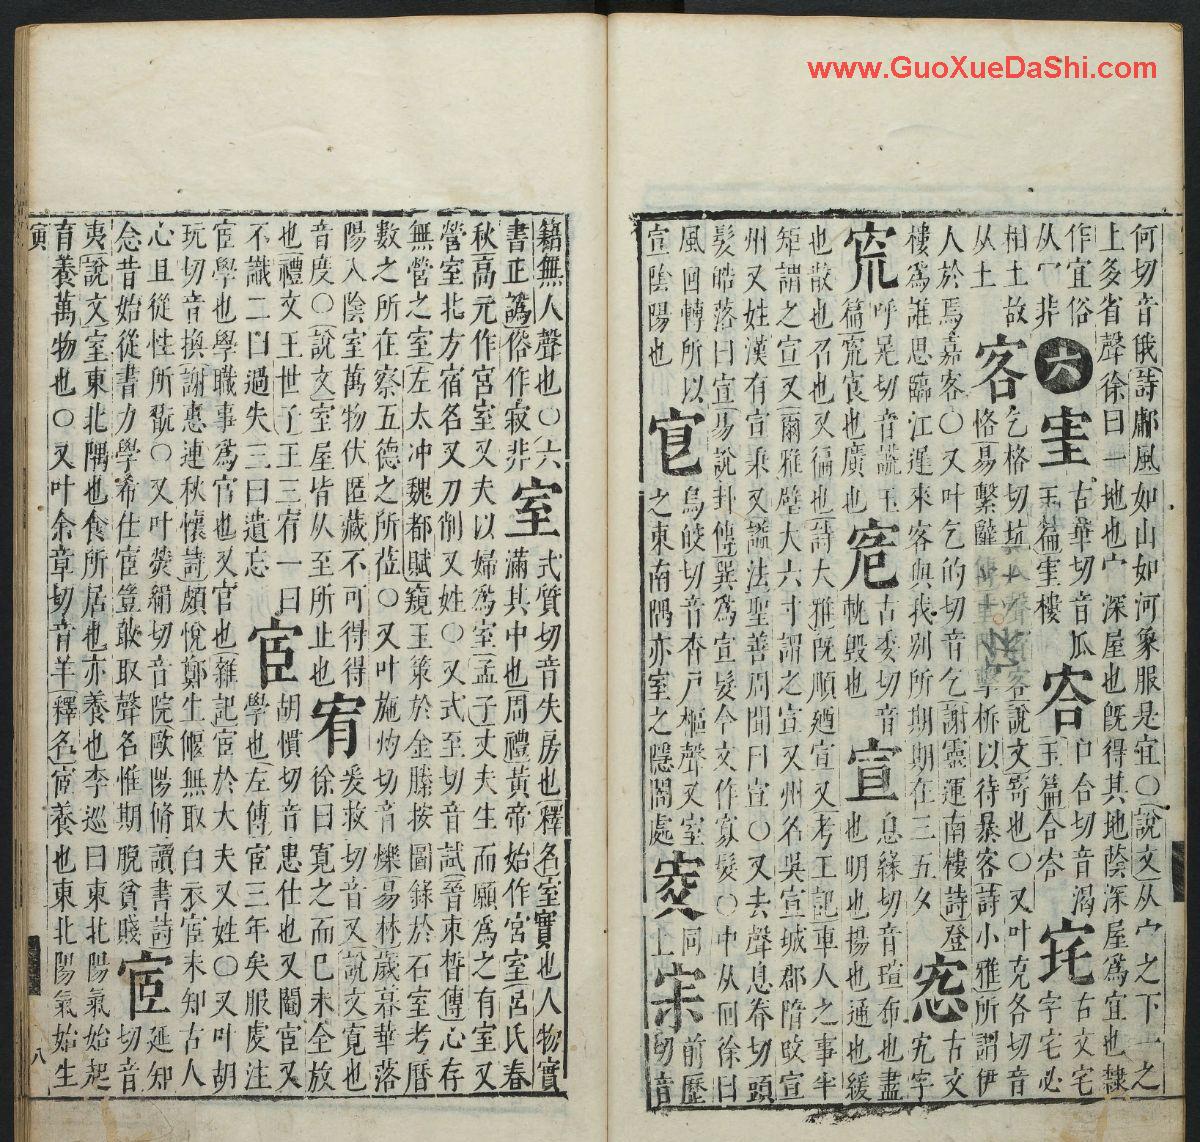 www.GuoXueDaShi.com
何切音俄詩鄘風如山如河象服是宜○說文从宀之下一之
上多省聲徐曰一地也宀深屋也旣得其地蔭深屋爲宜也隸
作宜俗
从冖非
六
室 古華切音瓜玉篇室樓
㝓 口合切音渴玉篇合㝓
宅 古文宅字宅必
相土故
从土
客 乞格切坑入聲賓客說文寄也○又叶克各切音
恪易繫辭 重門擊柝以待暴客詩小雅所謂伊
人於焉嘉客○又叶乞的切音乞謝靈運南樓詩登
樓爲誰思臨江遲來客與我別所期期在三五夕
古文
宄字
㝃 呼晃切音謊玉
篇㝃㝗也廣也
古委切音
軌毀也
宣 息緣切音瑄布也盡
也明也揚也通也緩
也散也召也又徧也詩大雅旣順廼宣又考工記車人之事半
矩謂之宣又爾雅璧大六寸謂之宣又州名吳宣城郡隋改宣
州又姓漢有宣秉又謚法聖善周聞曰宣○又去聲息眷切頭
髮皓落曰宣易說卦傳巽爲宣髮今文作寡髮○中从回徐曰
風回轉所以
宣陰陽也
烏皎切音杳戶樞聲又室
之東南隅亦室之隱闇處
同
上
前歷
切音
籍無人聲也○
書正譌俗作寂非
六
室 式質切音失房也釋名室實也人物實
滿其中也周禮黃帝始作宮室呂氏春
秋高元作宮室又夫以婦爲室孟子丈夫生而願爲之有室又
營室北方宿名又刀削又姓○又式至切音試晉束晳傳心存
無營之室左太冲魏都賦窺玉策於金縢按圖錄於石室考曆
數之所在察五德之所莅○又叶施灼切音爍易林歲暮華落
陽入陰室萬物伏匿藏不可得得
音度○說文室屋皆从至所止也
宥 爰救切音又說文寬也
徐曰寬之而已未全放
也禮文王世子王三宥一曰
不識二曰過失三曰遺忘
宦 胡慣切音患仕也又閹宦又
學也左傳宦三年矣服虔注
宦學也學職事爲官也又官也雜記宦於大夫又姓○又叶胡
玩切音換謝惠連秋懷詩頗悅鄭生偃無取白衣宦未知古人
心且從性所翫○又叶熒絹切音院歐陽脩讀書詩
念昔始從書力學希仕宦豈敢取聲名惟期脫貧賤
宧 延知
切音
夷說文室東北隅也食所居也亦養也李巡曰東北陽氣始起
育養萬物也○又叶余章切音羊釋名宧養也東北陽氣始生
寅
八